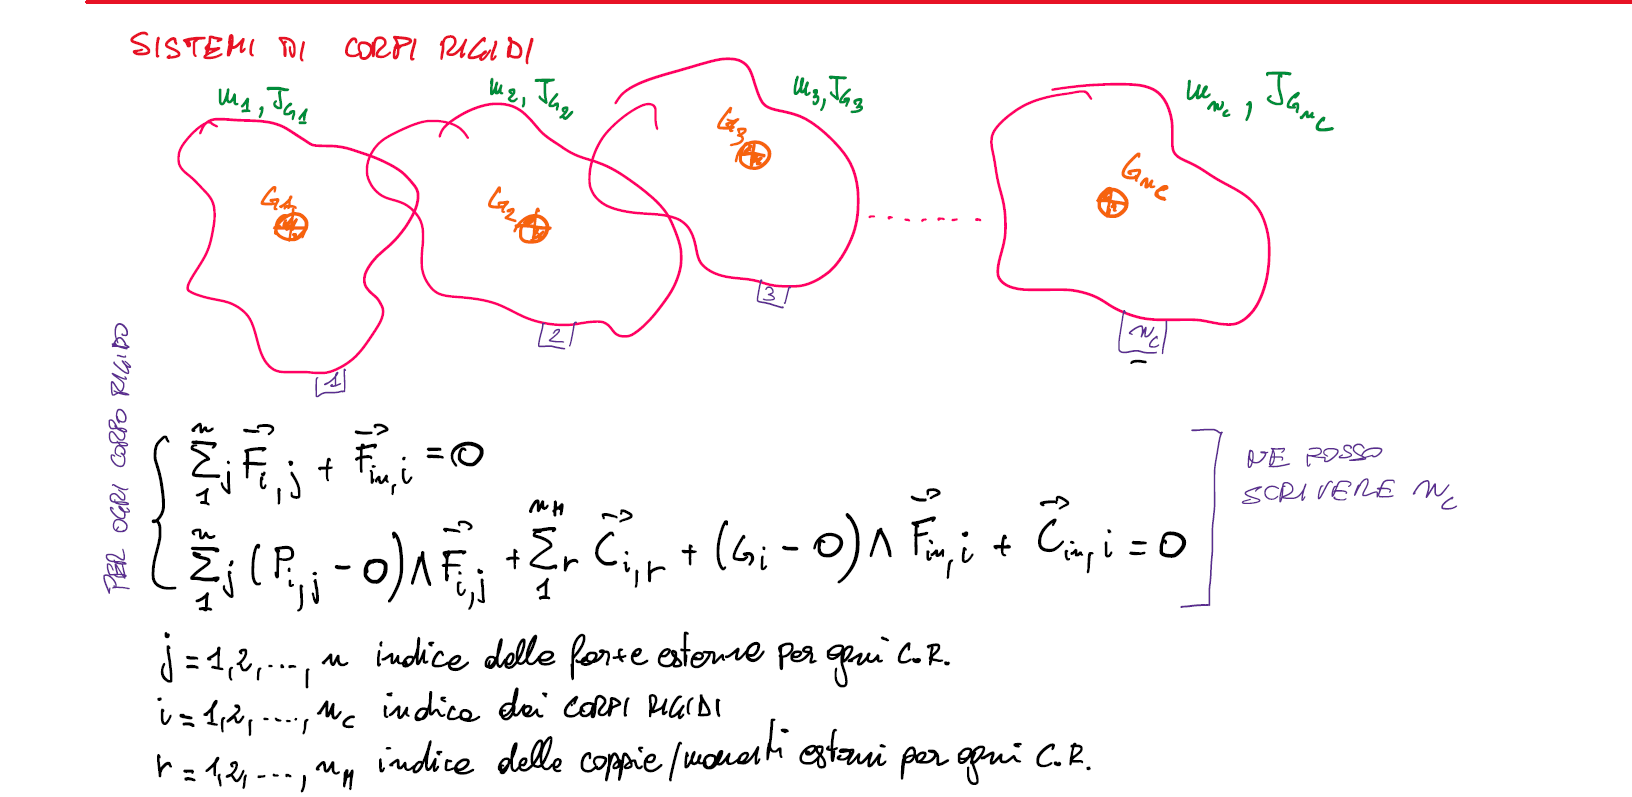 SISTEMI DI CORPI RIGIDI
m₁, J_G1
m₂, J_G2
m₃, J_G3
m_nc, J_Gnc
G1
G2
G3
Gnc
1
2
3
n_c
PER OGNI CORPO RIGIDO
∑_{j=1}^{n} F⃗_{i,j} + F⃗_{in,i} = 0
∑_{j=1}^{n} (P_{i,j} - O) ∧ F⃗_{i,j} + ∑_{r=1}^{n_M} C⃗_{i,r} + (G_i - O) ∧ F⃗_{in,i} + C⃗_{in,i} = 0
NE POSSO
SCRIVERE n_c
j = 1,2,...., n indice delle forze esterne per ogni C.R.
i = 1,2,....., n_c indice dei CORPI RIGIDI
r = 1,2,...., n_M indice delle coppie/momenti esterni per ogni C.R.